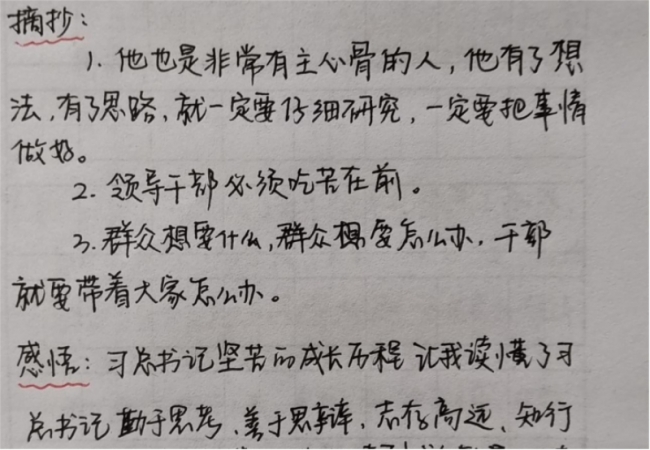 摘抄：
1. 他也是非常有主心骨的人，他有了想
法，有了思路，就一定要仔细研究，一定要把事情
做好。
2. 领导干部必须吃苦在前。
3. 群众想要什么，群众想要怎么办，干部
就要带着大家怎么办。
感悟：习总书记坚苦的成长历程让我读懂了习
总书记勤于思考、善于思辨、志存高远、知行